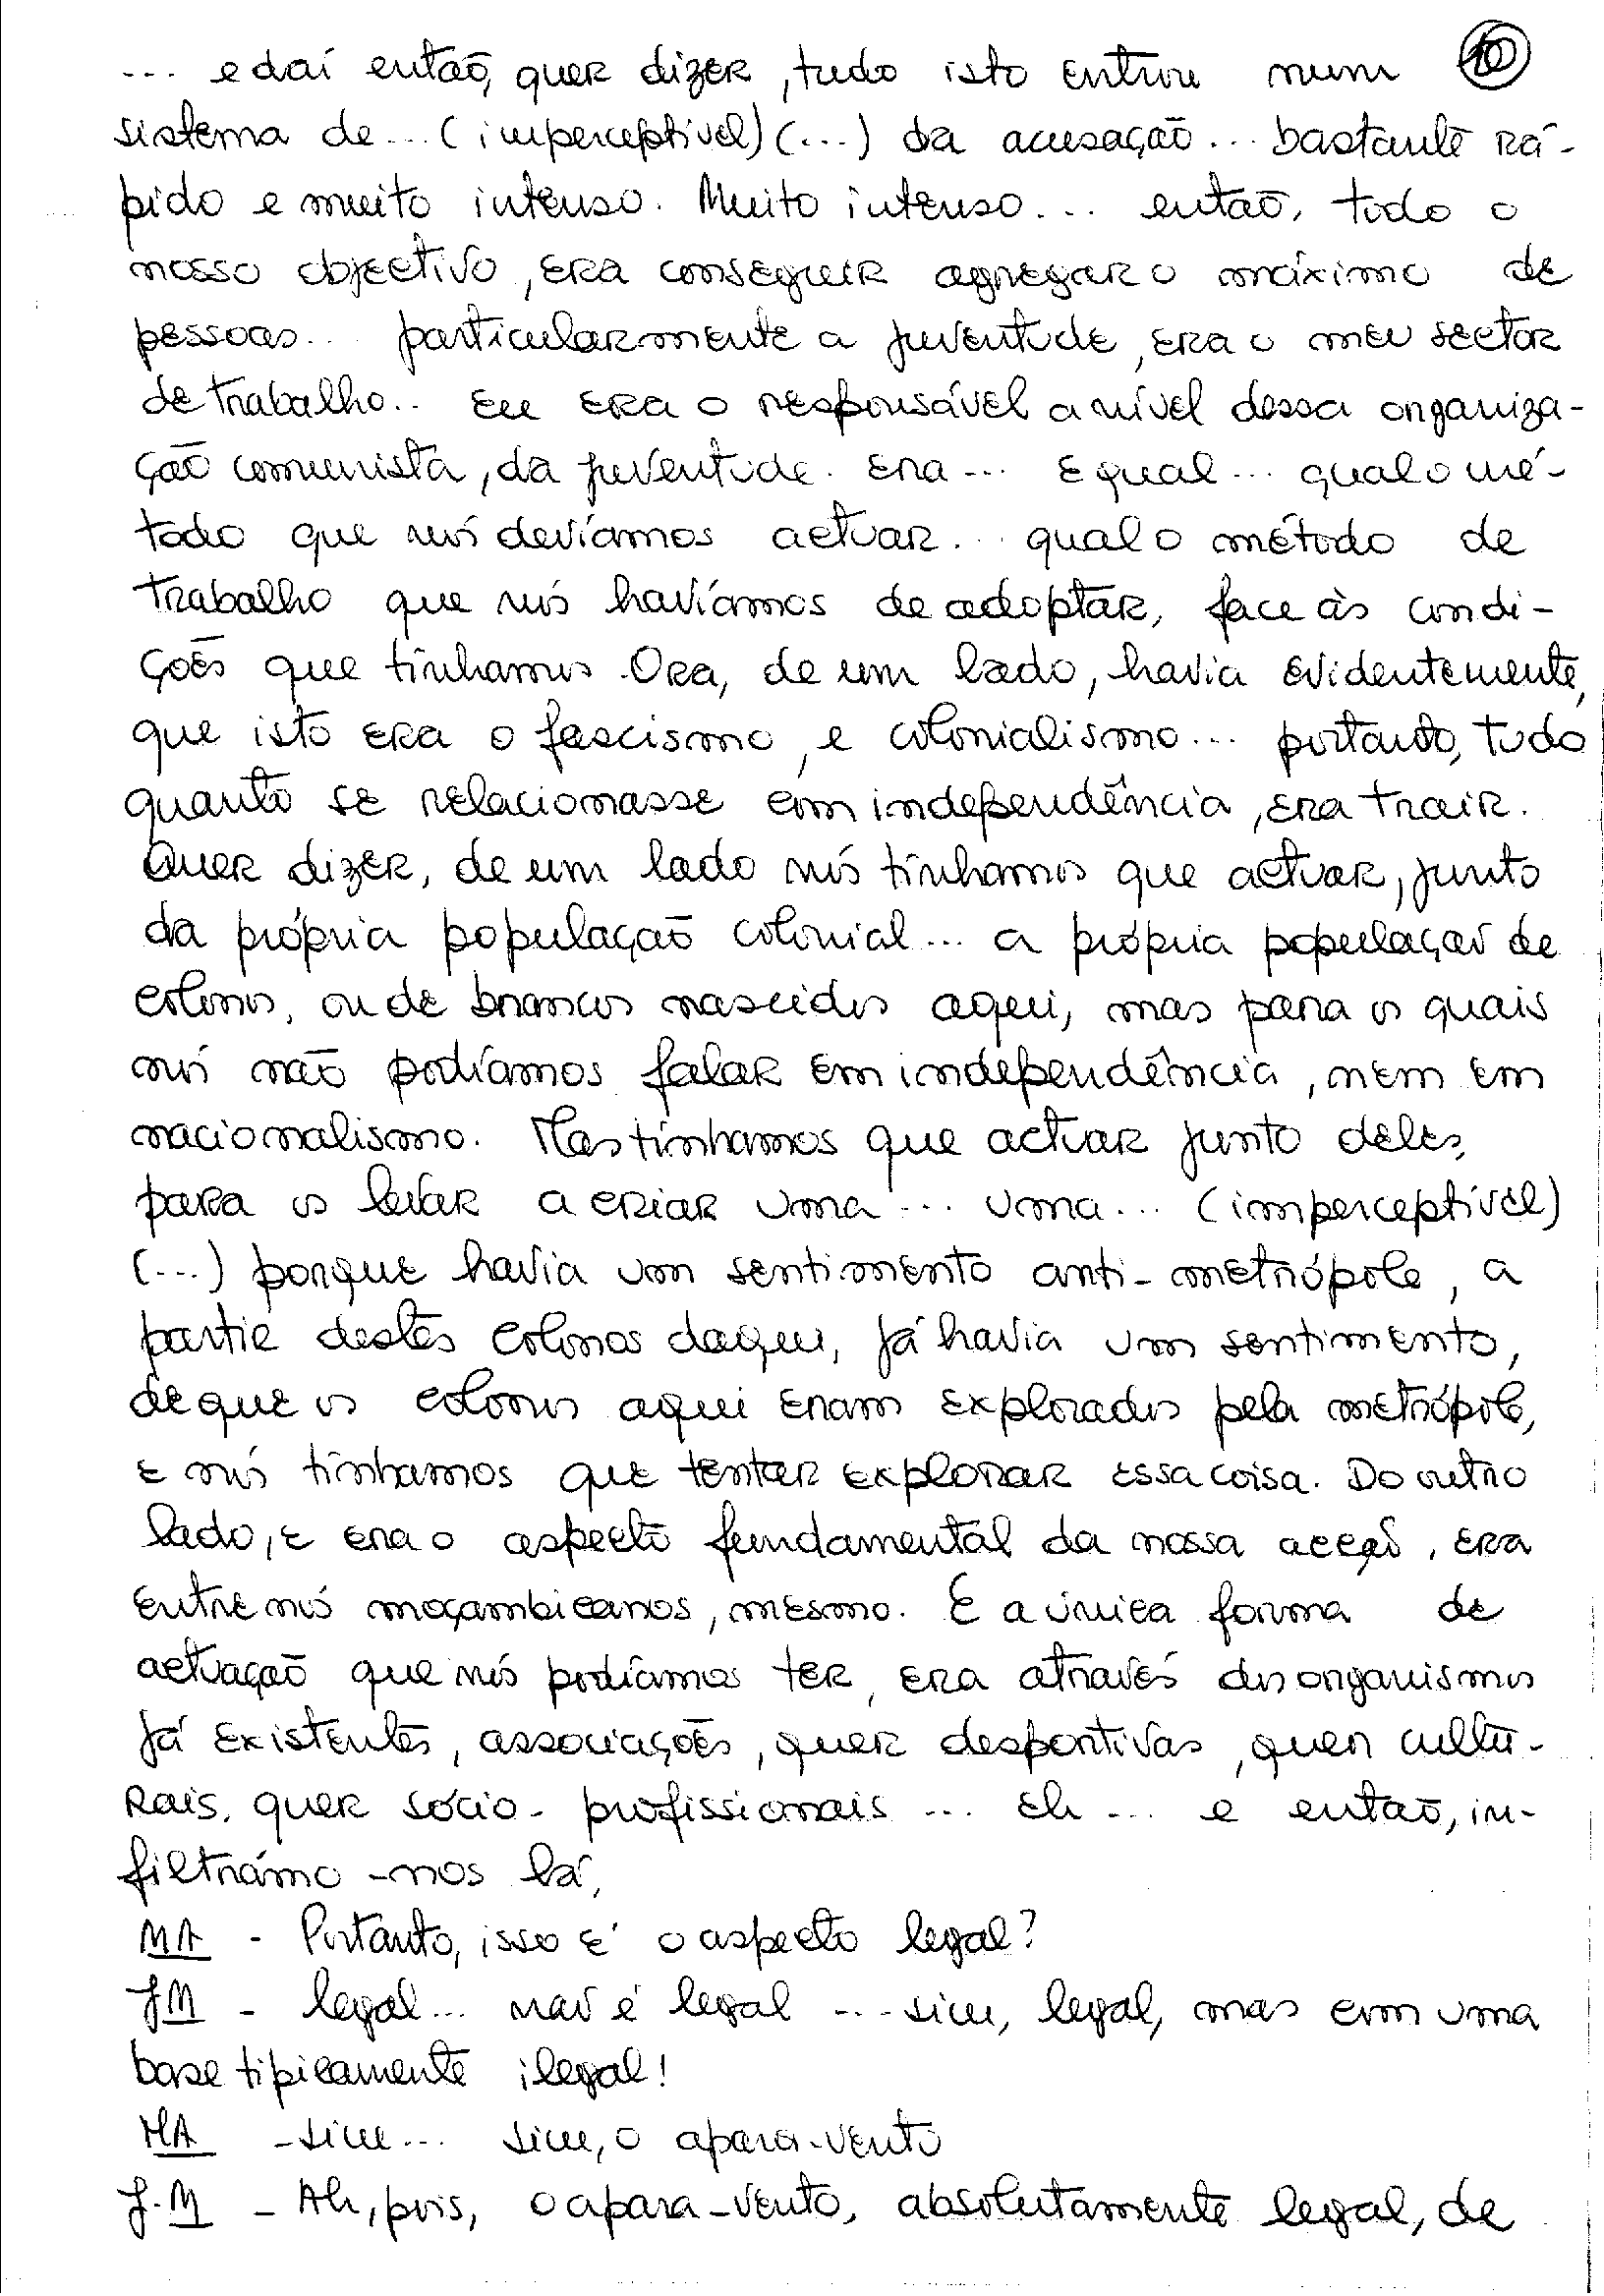 ... e daí então, quer dizer, tudo isto entrou num 10
sistema de... (imperceptível) (...) da acusação... bastante rá-
pido e muito intenso. Muito intenso... então, todo o
nosso objectivo, era conseguir agregar o máximo de
pessoas... particularmente a juventude, era o meu sector
de trabalho.. Eu era o responsável a nível dessa organiza-
ção comunista, da juventude. Era... E qual... qual o mé-
todo que nós devíamos actuar... qual o método de
trabalho que nós havíamos de adoptar, face às condi-
ções que tínhamos. Ora, de um lado, havia evidentemente,
que isto era o fascismo, e colonialismo... portanto, tudo
quanto se relacionasse com independência, era trair.
Quer dizer, de um lado nós tínhamos que actuar, junto
da própria população colonial... a própria população de
colonos, ou de brancos nascidos aqui, mas para os quais
nós não podíamos falar em independência, nem em
nacionalismo. Mas tínhamos que actuar junto deles,
para os levar a criar uma... uma... (imperceptível)
(...) porque havia um sentimento anti-metrópole, a
partir destes colonos daqui, já havia um sentimento,
de que os colonos aqui eram explorados pela metrópole,
e nós tínhamos que tentar explorar essa coisa. Do outro
lado, e era o aspecto fundamental da nossa acção, era
entre nós moçambicanos, mesmo. E a única forma de
actuação que nós podíamos ter, era através dos organismos
já existentes, associações, quer desportivas, quer cultu-
rais, quer sócio-profissionais... Eh... e então, in-
filtrámo-nos lá,
MA - Portanto, isso é o aspecto legal?
JM - legal... não é legal... sim, legal, mas com uma
base tipicamente ilegal!
MA - sim... sim, o apara-vento
J.M - Ah, pois, o apara-vento, absolutamente legal, de